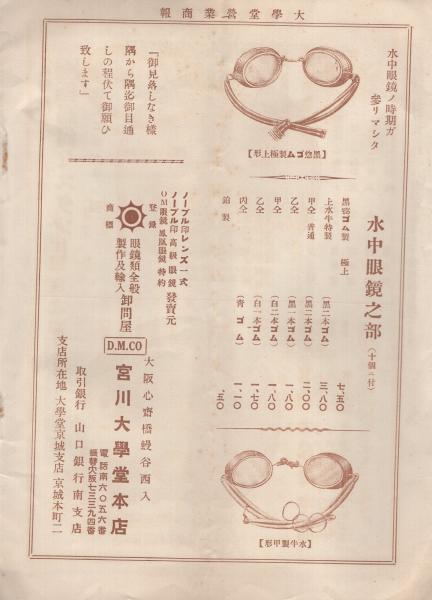 報商業營堂學大
水中眼鏡ノ時期ガ
參リマシタ
【形上極製ムゴ惚黑】
水中眼鏡之部
(十個ニ付)
黑惚ゴム製 極上 七、五〇
上水牛特製 (黑二本ゴム) 三、八〇
甲仝 普通 (黑一本ゴム) 二、〇〇
甲仝 (白二本ゴム) 一、八〇
乙仝 (白一本ゴム) 一、七〇
丙仝 (靑ゴム) 一、一〇
鉛製 、五〇
【形甲製牛水】
「御見落しなき樣
隅から隅迄御目通
しの程伏て御願ひ
致します」
ノーブル印レンズ一式
ノーブル印高級眼鏡
OM眼鏡 鳳凰眼鏡 特約
發賣元
登錄
商標
眼鏡類全般
製作及輸入
卸問屋
D.M.CO
大阪心齋橋鰻谷西入
宮川大學堂本店
電話南六〇五六番
振替大阪七三三九四番
取引銀行 山口銀行南支店
支店所在地 大學堂京城支店 京城本町二